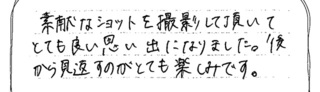 素敵なショットを撮影して頂いて
とても良い思い出になりました。後
から見返すのがとても楽しみです。